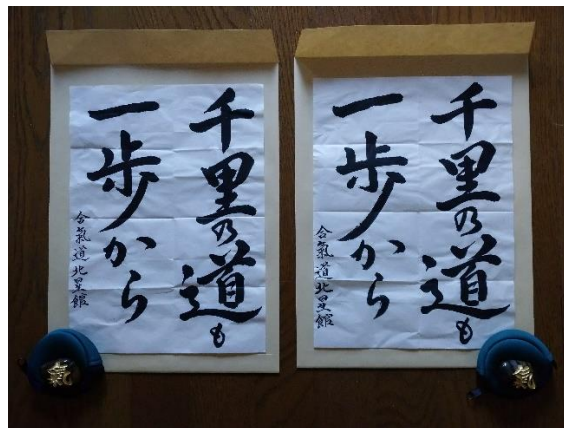 千里乃道も
一歩から
合氣道北星館
千里乃道も
一歩から
合氣道北星館